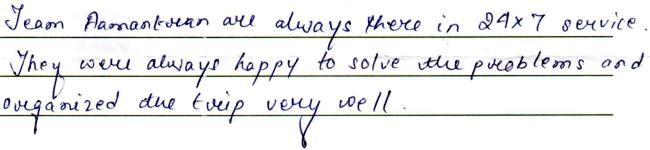 Team Aamantran are always there in 24x7 service.
They were always happy to solve the problems and
organized the trip very well.